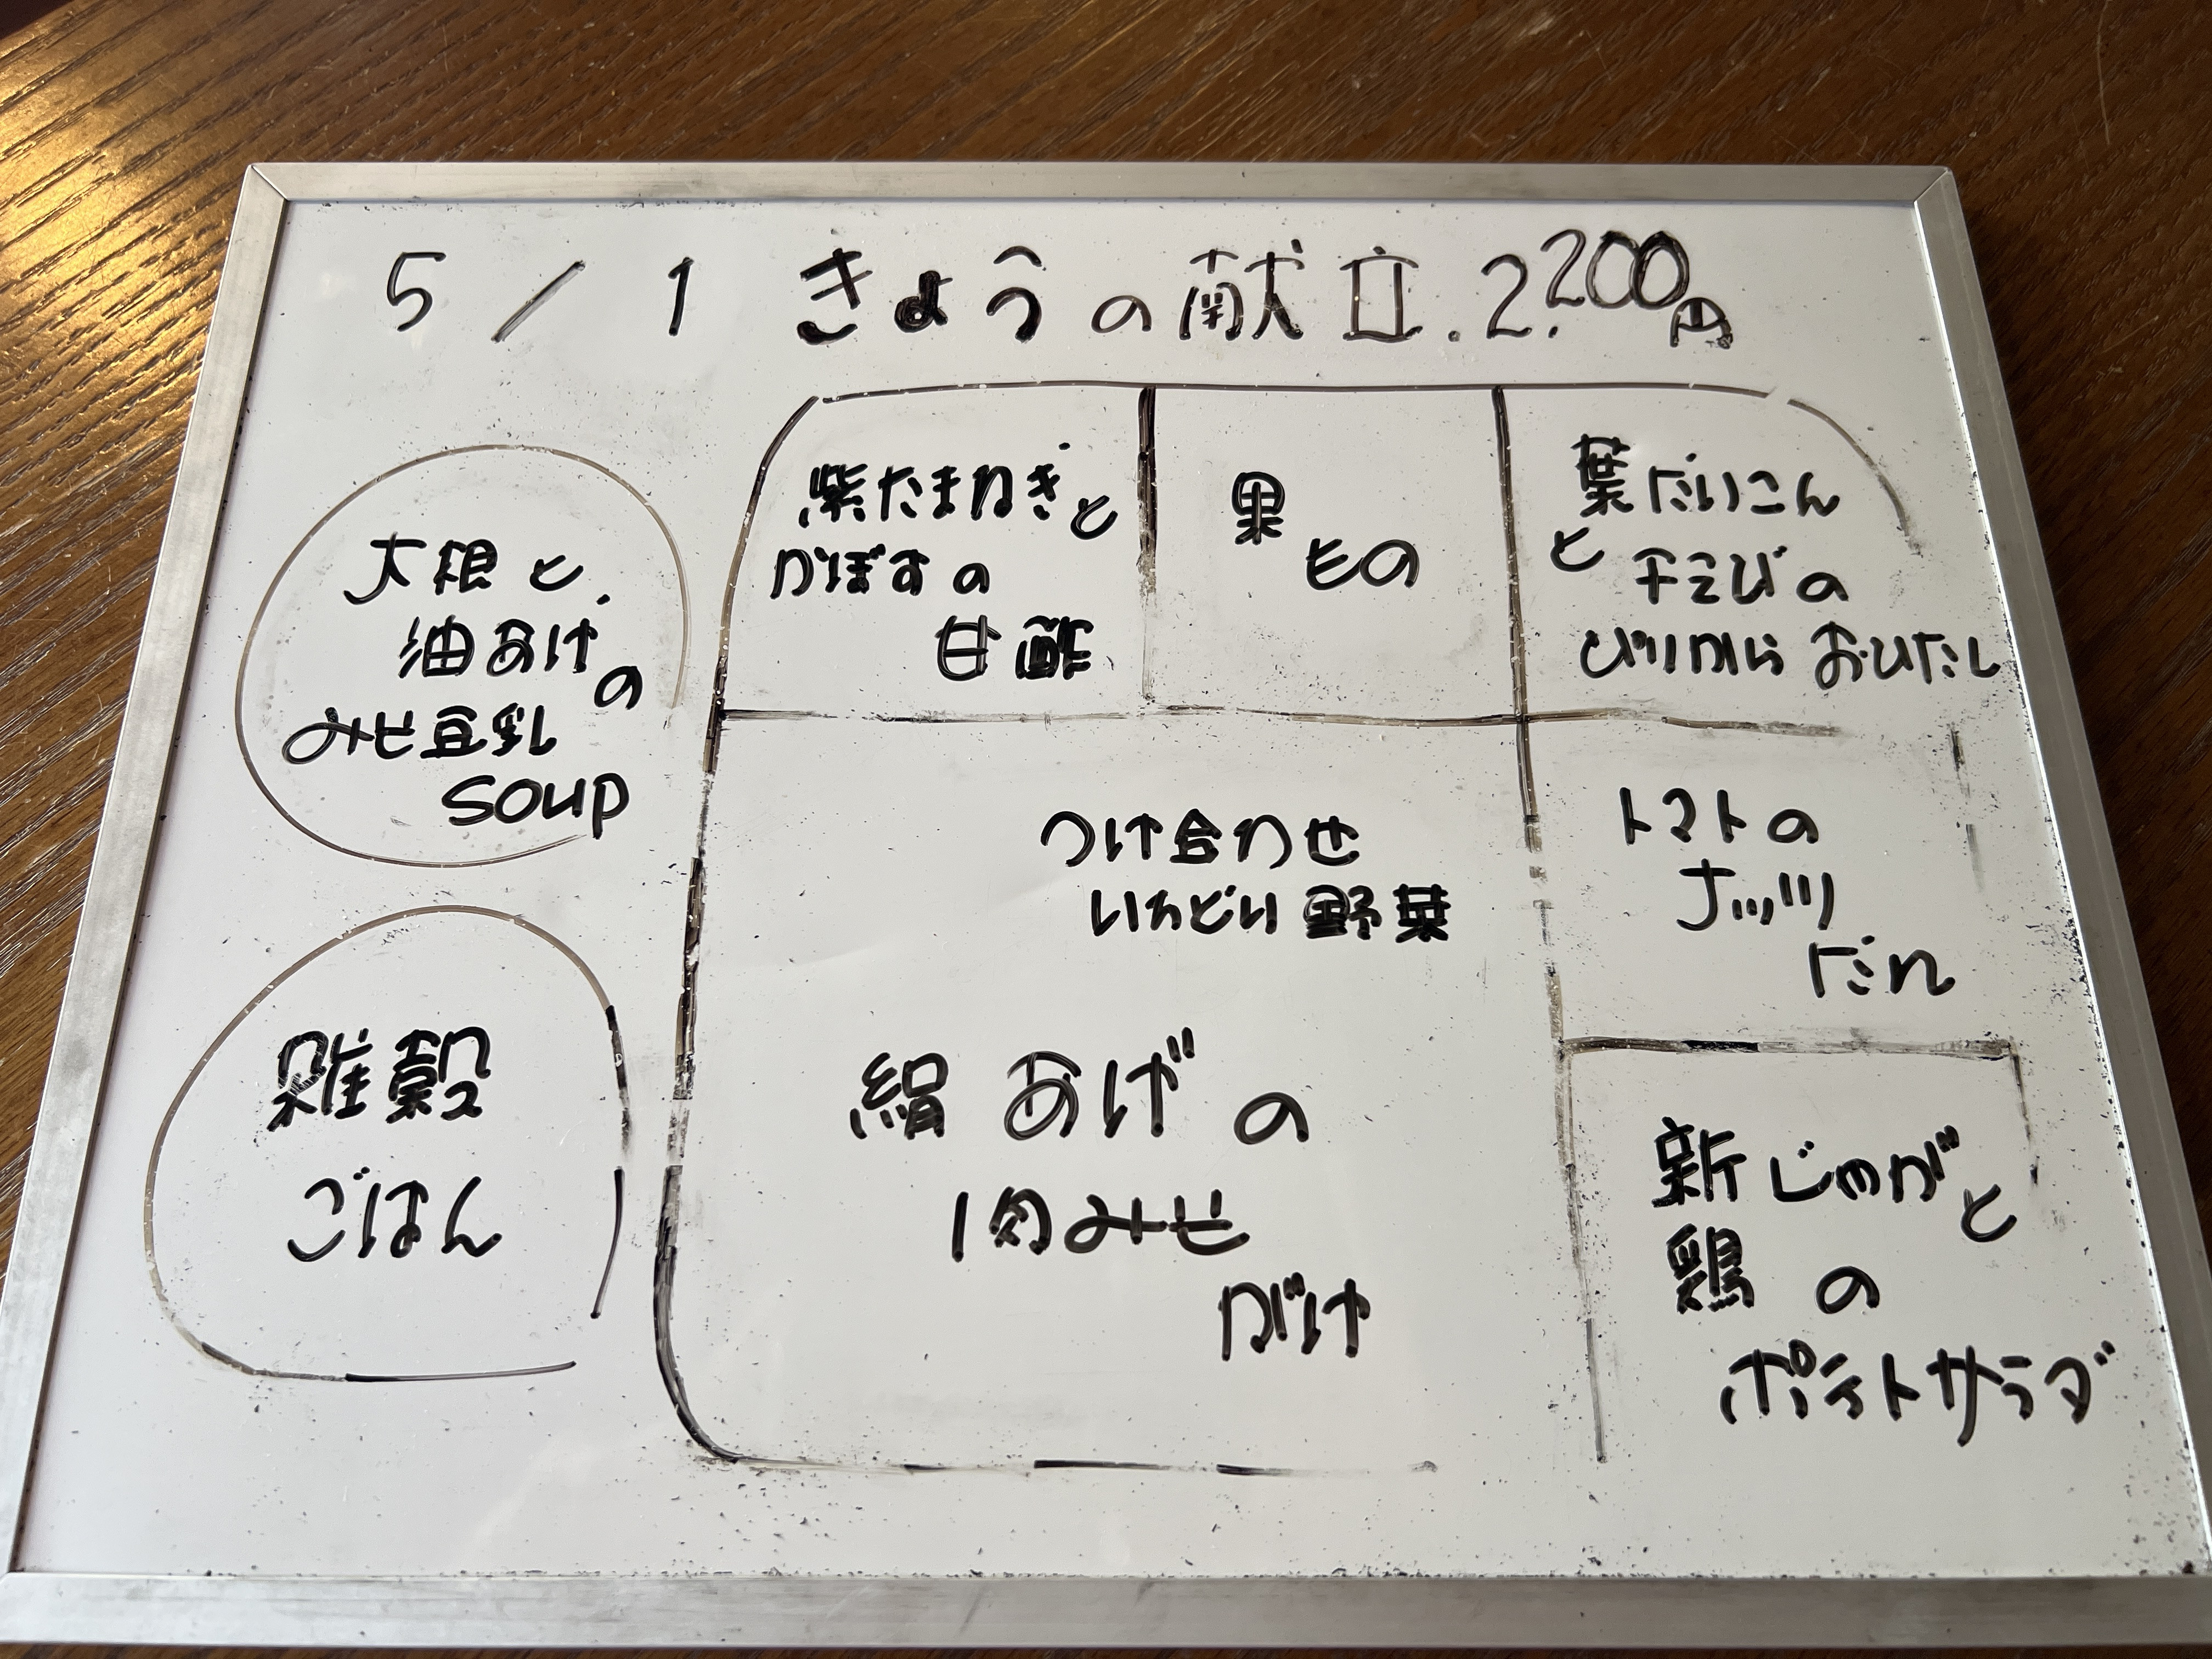 5/1 きょうの献立.2.200円
大根と
油あげの
みそ豆乳
soup
雑穀
ごはん
紫たまねぎと
かぼすの
甘酢
果もの
葉だいこん
と干えびの
ぴりからおひたし
つけ合わせ
いろどり野菜
絹あげの
肉みそ
がけ
トマトの
ナッツ
だれ
新じゃがと
鶏の
ポテトサラダ